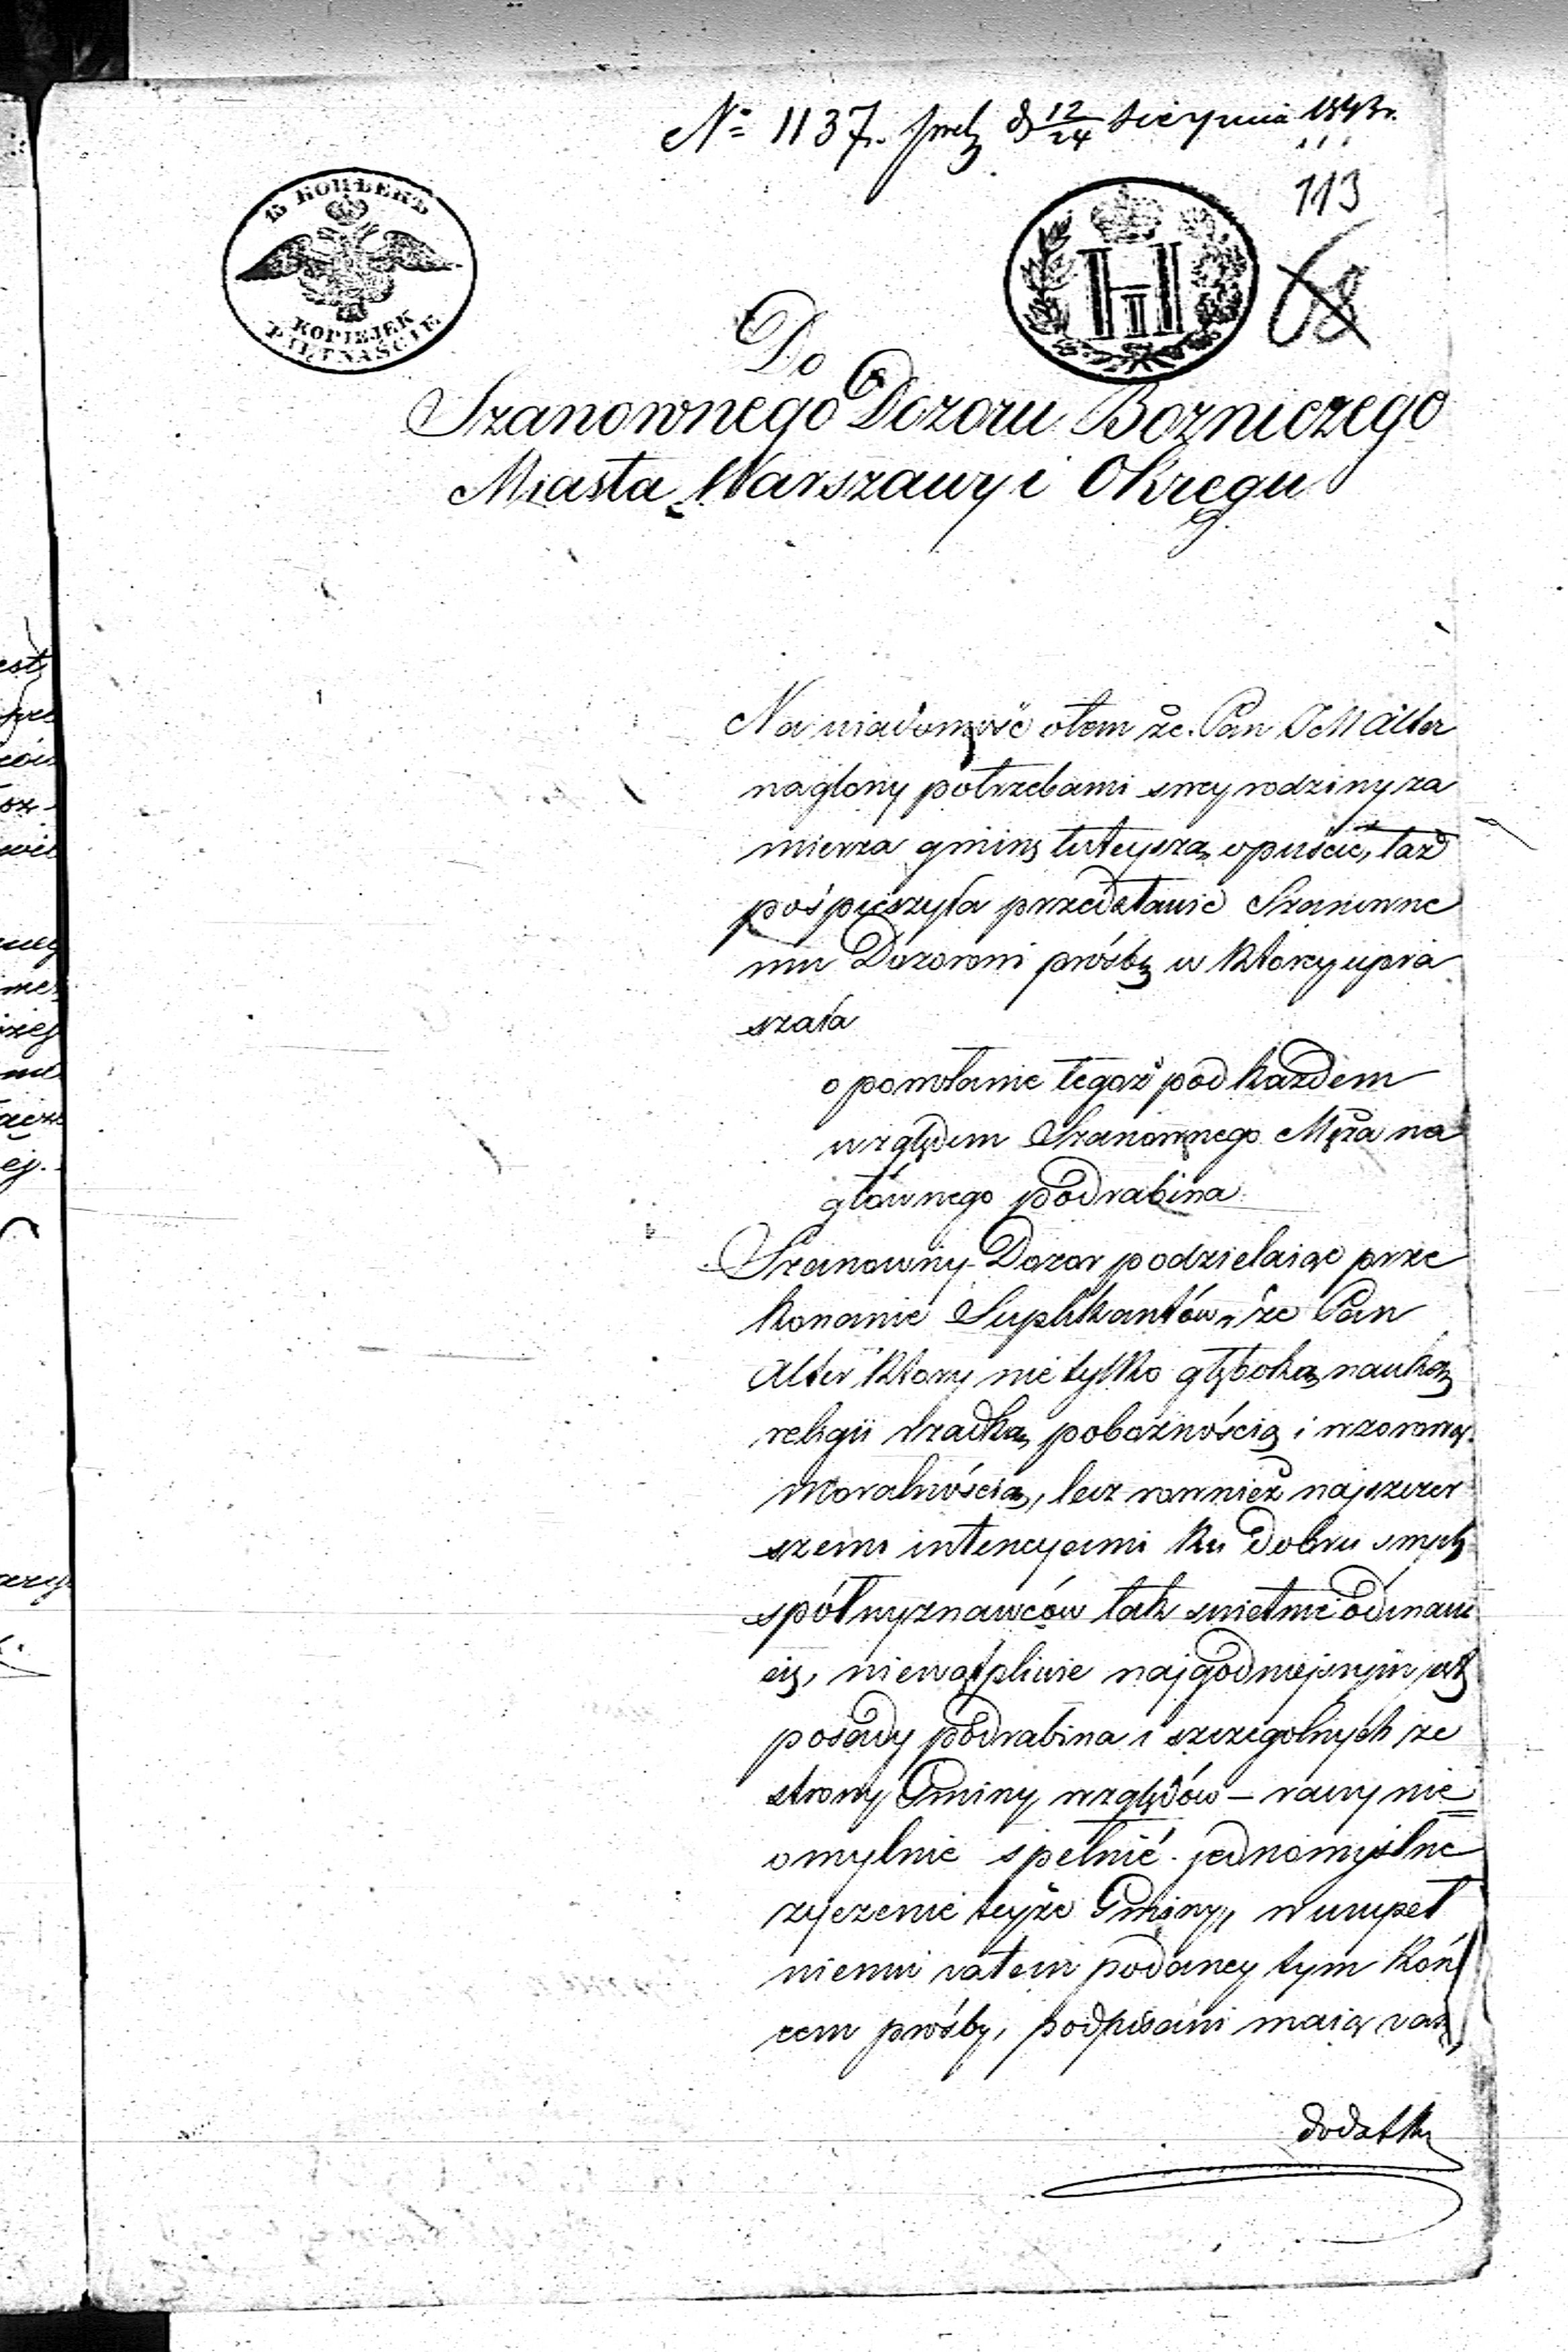 № 1137. prez d 12/24 Sierpnia 1843 r.
113
68
15 КОПѢЕКЪ
KOPIEJEK
PIĘTNAŚCIE
H
II
Do
Szanownego Dozoru Bozniczego
Miasta Warszawy i Okręgu
Na wiadomość otem że Pan Alter
naglony potrzebami swey rodziny za
mierza gminę tuteyszą opuścić, taż
pośpieszyła przedstawić Szanowne
mu Dozorowi prośbę w ktorey upra
szała
o powołanie tegoż pod każdem
względem Szanownego Męża na
głównego podrabina
Szanowny Dozor podzielaiąc prze
konanie Suplikantów, że Pan
Alter ktory nie tylko głęboką nauką
religii rzadką pobożnością i wzorową
moralnością, lecz rownież najszczer
szemi intencyami ku dobru swych
spółwyznawców tak swietnie odznacza
się, niewątpliwie najgodniejszym jest
posady podrabina i szczegolnych ze
strony Gminy względów – raczy nie
omylnie spełnić jednomyślne
życzenie teyże Gminy, w uzupeł
nieniu zatem podaney tym koń
cem prośby, podpisani maią
dodatk
est